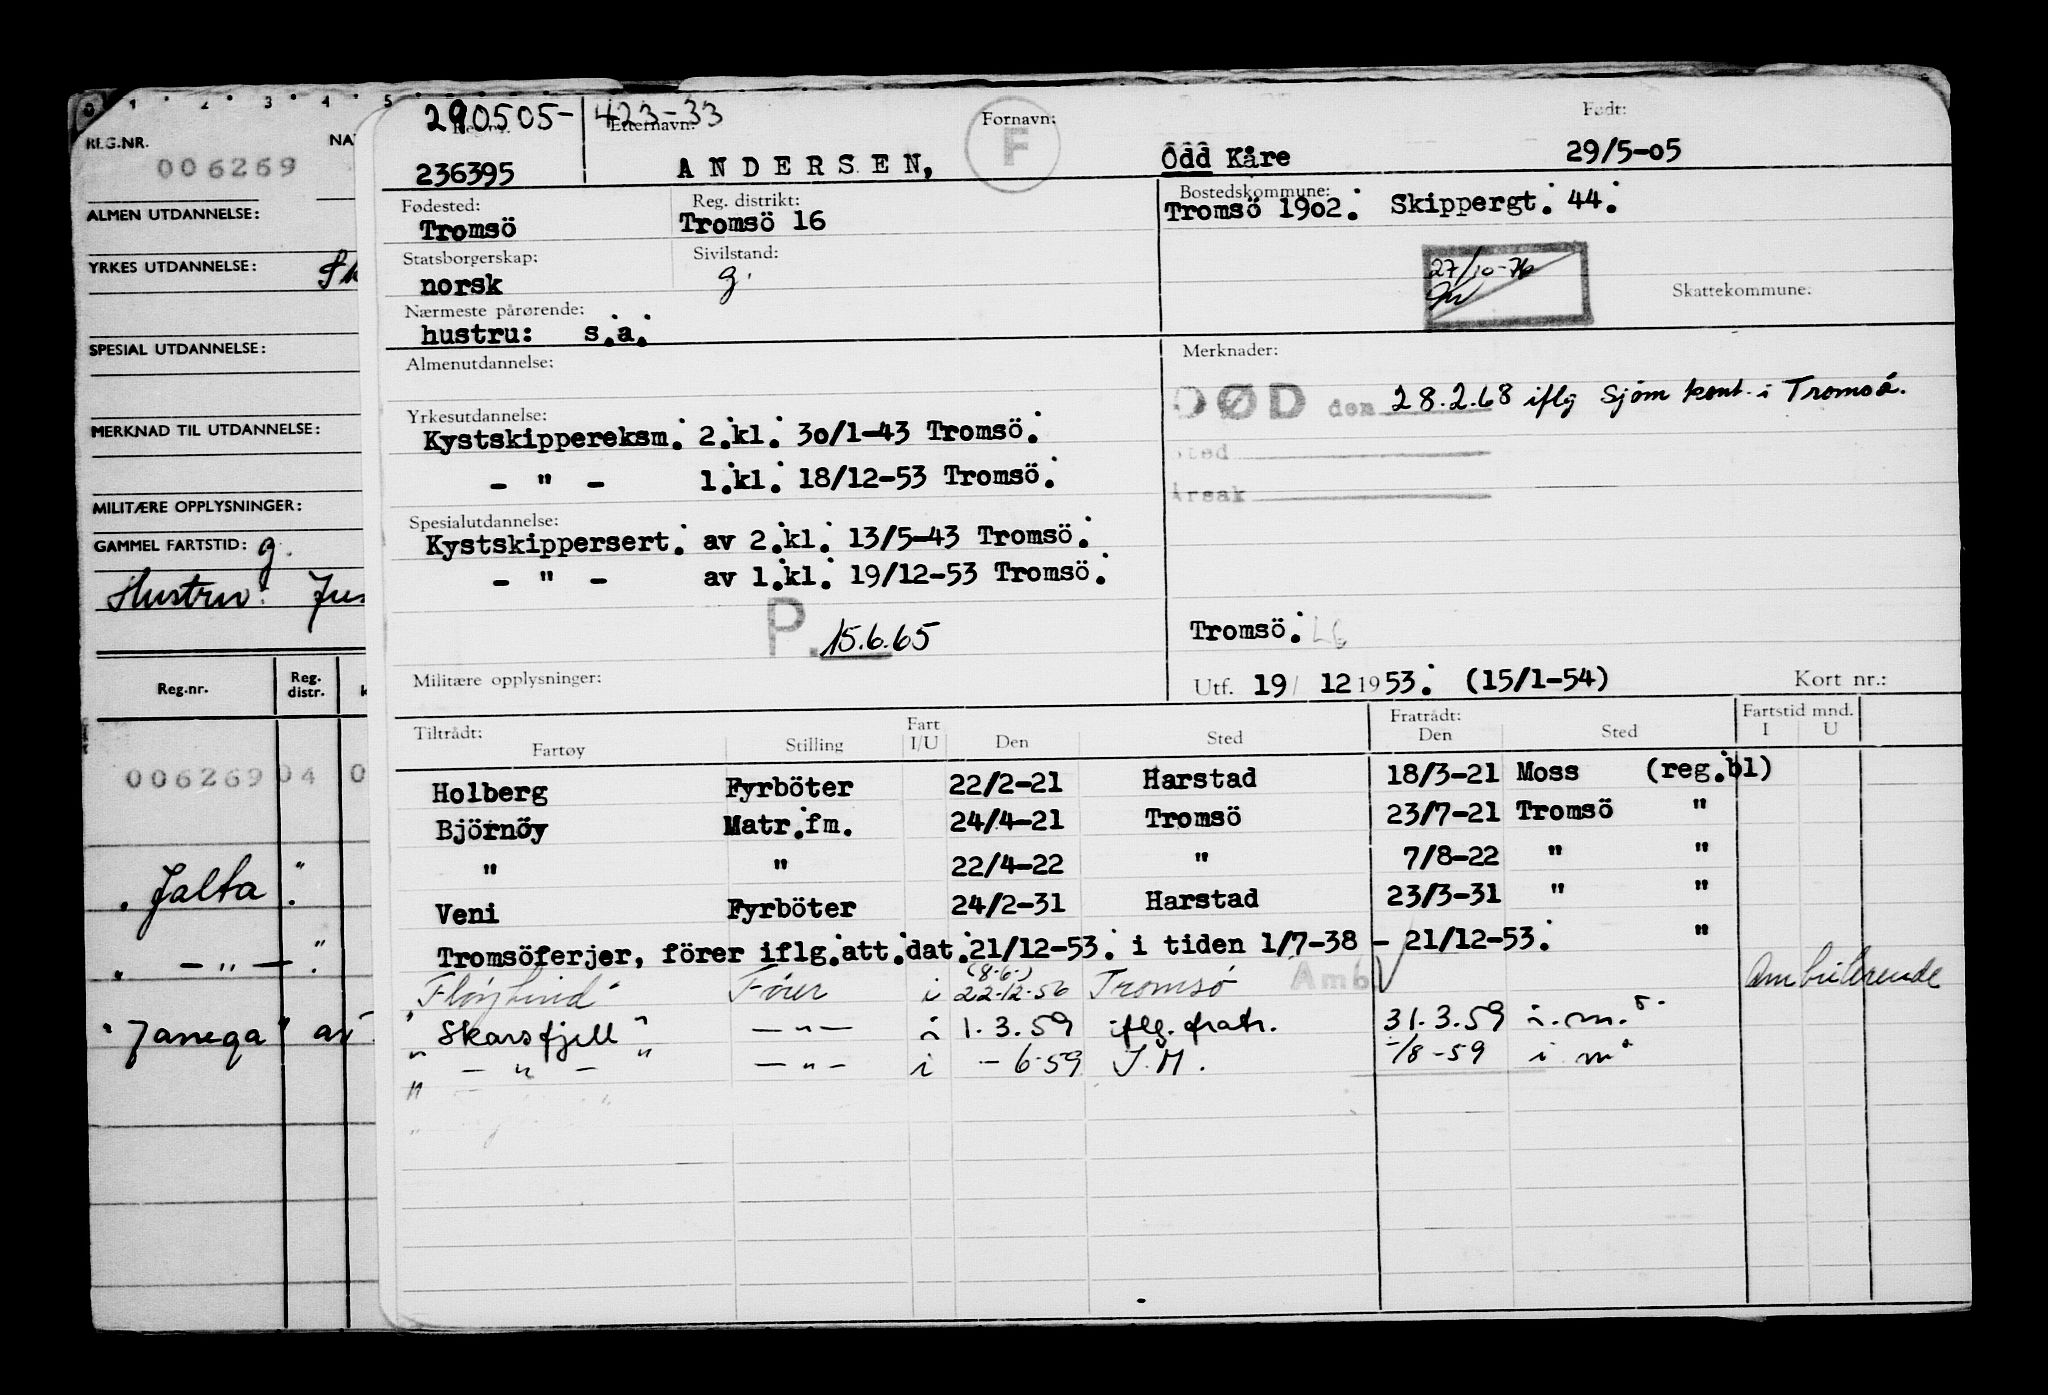 1 2 3 4 5
REG.NR.
006269
ALMEN UTDANNELSE:
YRKES UTDANNELSE:
SPESIAL UTDANNELSE:
MERKNAD TIL UTDANNELSE:
MILITÆRE OPPLYSNINGER:
GAMMEL FARTSTID: g.
Hustru:
Reg.nr. Reg. distr.
006269 04 0
" Jalta "
" - " - "
" Janega " av
290505- 423-33
Reg.nr. Etternavn: Fornavn: Født:
236395 ANDERSEN, F Odd Kåre 29/5-05
Fødested: Reg. distrikt: Bostedskommune:
Tromsö Tromsö 16 Tromsö 1902. Skippergt. 44.
Statsborgerskap: Sivilstand:
norsk g.
27/10-76
Skattekommune:
Nærmeste pårørende:
hustru: s.a.
Almenutdannelse: Merknader:
DØD den 28.2.68 iflg Sjøm kont. i Tromsø.
Sted
Årsak
Yrkesutdannelse:
Kystskippereksm. 2.kl. 30/1-43 Tromsö.
- " - 1.kl. 18/12-53 Tromsö.
Spesialutdannelse:
Kystskippersert. av 2.kl. 13/5-43 Tromsö.
- " - av 1.kl. 19/12-53 Tromsö.
P. 15.6.65
Tromsö.
Militære opplysninger: Utf. 19/ 12 1953. (15/1-54) Kort nr.:
Tiltrådt: Fartøy Stilling Fart I/U Den Sted Fratrådt: Den Sted Fartstid mnd. I U
Holberg Fyrböter 22/2-21 Harstad 18/3-21 Moss (reg.bl)
Björnöy Matr.fm. 24/4-21 Tromsö 23/7-21 Tromsö "
" " 22/4-22 " 7/8-22 " "
Veni Fyrböter 24/2-31 Harstad 23/3-31 " "
Tromsöferjer, förer iflg.att.dat.21/12-53. i tiden 1/7-38 - 21/12-53. "
(8.6.)
Fører i 22-12-56 Tromsø Amb Ambulerende
" Skarsfjell " - " - i 1.3.59 iflg. fratr. 31.3.59 i.m.
" - " - " - " - i - 6-59 I.M. -/8-59 i m